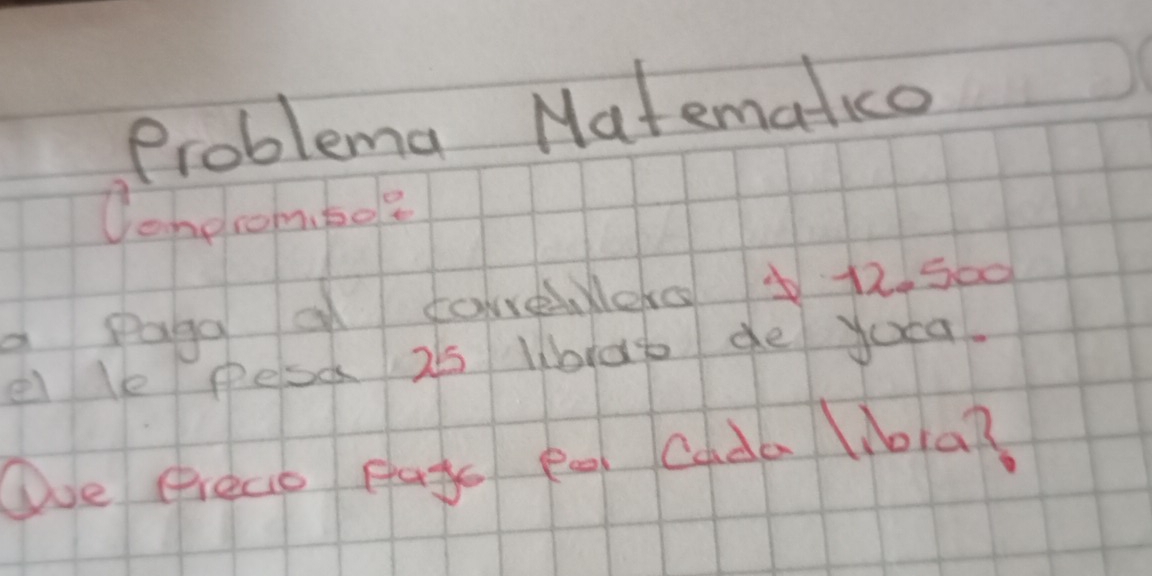 Problema Matematico
Compromiso:
a paga al carretillero $ 12.500
el le pesa 25 libras de yuca.
Que precio pago por cada libra?